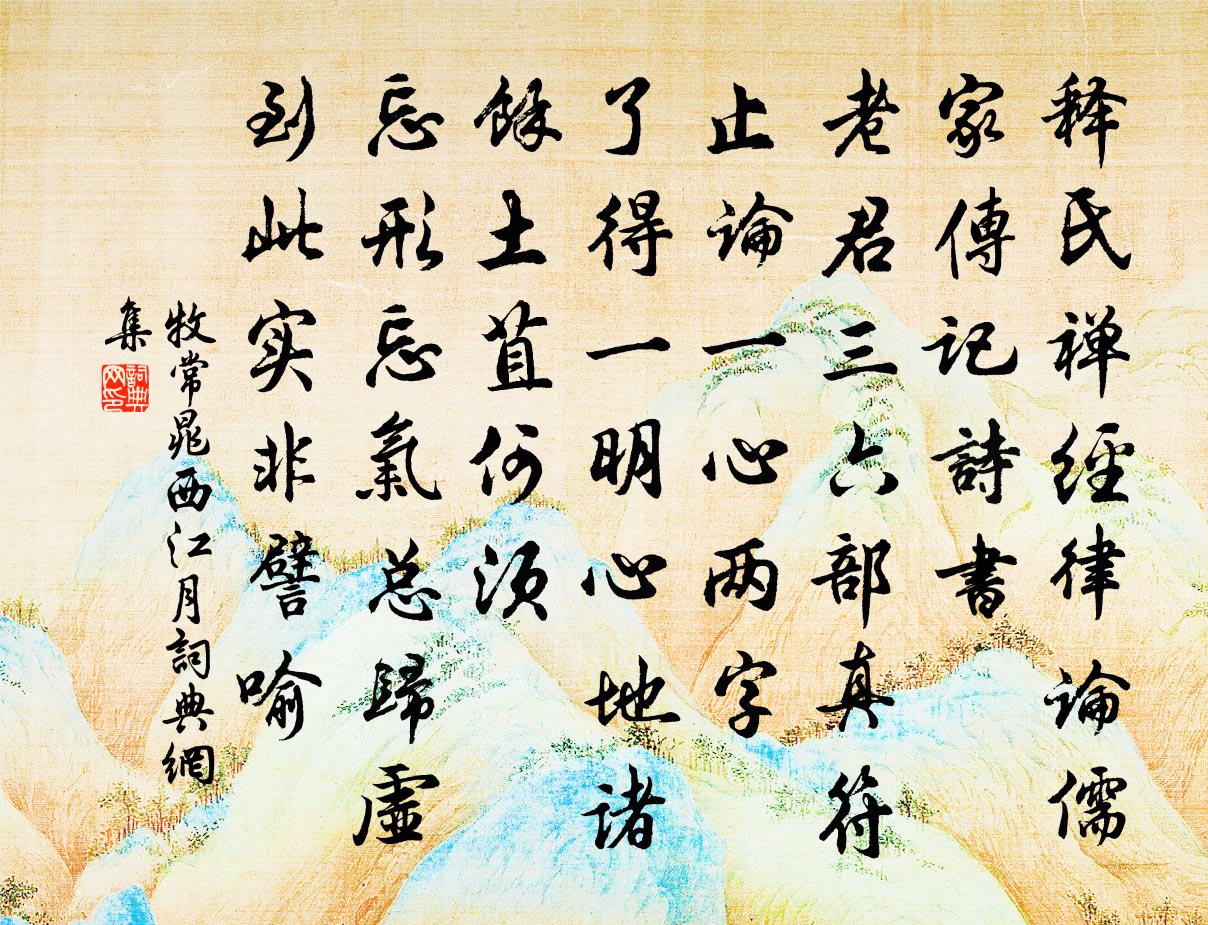 释氏禅经律论儒
家傳记詩書
老君三六部真符
止論一心两字
了得一明心地诸
餘土苴何须
忘形忘氣总歸虚
到此实非譬喻
牧常晁西江月詞典網
集
詞典
网印